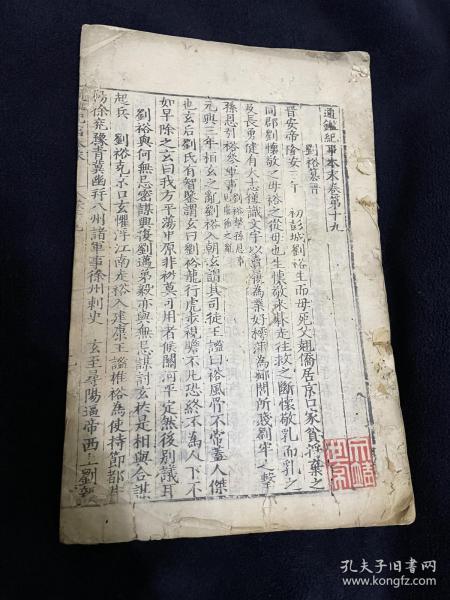 通鑑紀事本末卷第十九
劉裕篡晉
晉安帝隆安三年 初彭城劉裕生而母死父翹僑居京口家貧將棄之
同郡劉懷敬之母裕之從母也生懷敬未朞走往救之斷懷敬乳而乳之
及長勇健有大志僅識文字以賣履為業好樗蒲為鄉閭所賤劉牢之擊
孫恩引裕參軍事
元興三年桓玄之亂劉裕入朝玄謂其司徒王謐曰裕風骨不常蓋人傑
也玄后劉氏有智鑒謂玄曰劉裕龍行虎步視瞻不凡恐終不為人下不
如早除之玄曰我方平蕩中原非裕莫可用者俟關河平定然後別議耳
劉裕與何無忌密謀興復劉邁弟毅亦與無忌謀討玄於是相與合謀
起兵 劉裕克京口玄懼浮江南走裕入建康王謐推裕為使持節都
揚徐兗豫青冀幽并八州諸軍事徐州刺史 玄至尋陽逼帝西上劉
孔夫子旧书网
www.kongfz.com